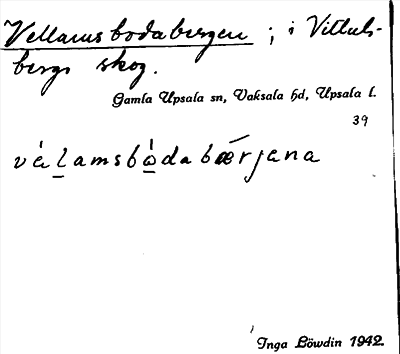 Vellamsbodabergen ; i Vittuls-
bergs skog.
Gamla Upsala sn, Vaksala hd, Upsala l.
39
vélamsbòdabærjena
Inga Löwdin 1942.